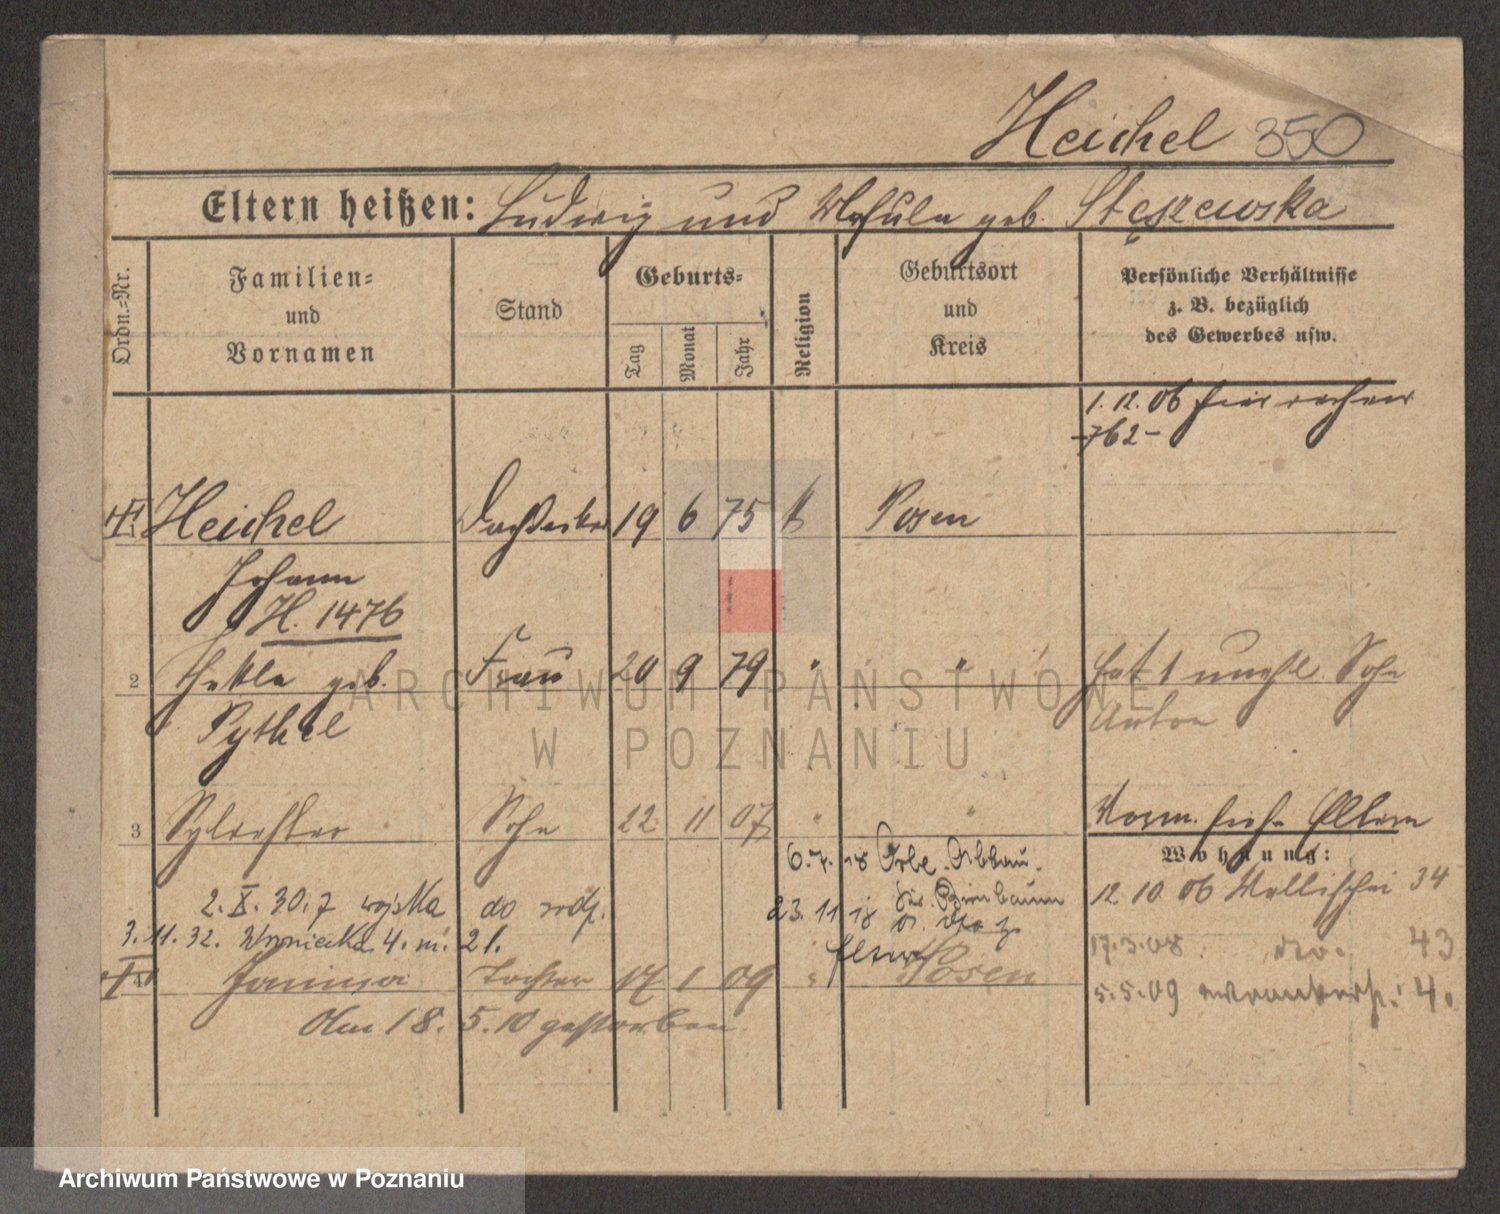 Heichel 350
Eltern heißen: Ludwig und Ursula geb. Stęszewska
Ordn.=Nr.
Familien= und Vornamen
Stand
Geburts=
Tag
Monat
Jahr
Religion
Geburtsort und Kreis
Persönliche Verhältnisse
z. B. bezüglich
des Gewerbes usw.
1.12.06
-762-
Heichel Dachdecker 19 6 75 k Posen
Johann
H. 1476
2 Thekla geb. Frau 20 9 79 " " hat 1 unehl. Sohn
Pythel Anton
3 Sylvester Sohn 22 11 07 " " Vorm. siehe Eltern
Wohnung:
6.7.18 Abbau.
Kr. Birnbaum
12.10.06 Wallischei 34
2.X.30. z wojska do
23.11.18
3.11.32. Wroniecka 4. m. 21.
17.3.08. do. 43
Janina Tochter 17 1 09 " Posen
5.5.09 4.
Am 18. 5.10 gestorben
ARCHIWUM PAŃSTWOWE
W POZNANIU
Archiwum Państwowe w Poznaniu